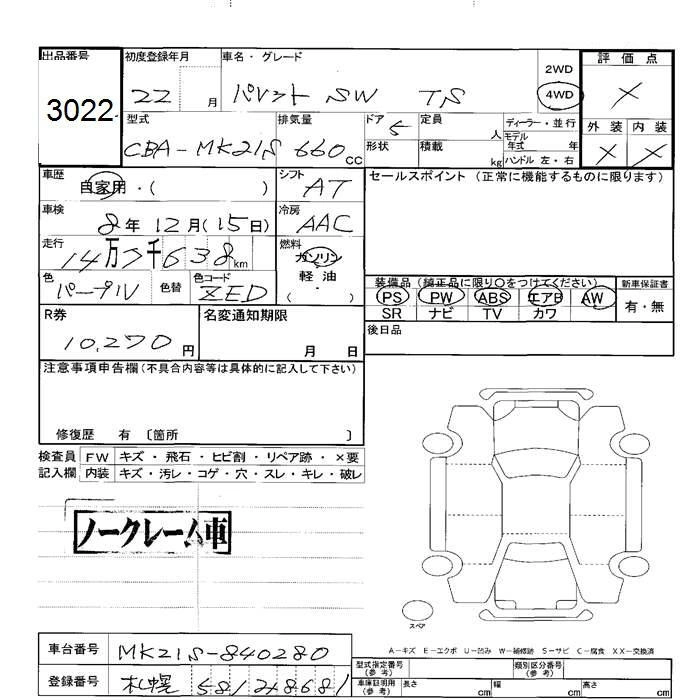 出品番号 初度登録年月 車名・グレード 評価点
3022 22 月 パレット SW TS 2WD 4WD ×
型式 排気量 ドア 5 定員 人 ディーラー・並行 外装 内装
CBA-MK21S 660cc 形状 積載 kg モデル年式 年 × ×
ハンドル 左・右
車歴 自家用・( ) シフト AT セールスポイント (正常に機能するものに限ります)
車検 8年12月(15日) 冷房 AAC
走行 14万 千638km 燃料 ガソリン
軽油
( )
色 パープル 色替 色コード ZED
装備品 (純正品に限り○をつけてください) 新車保証書
PS PW ABS エアB AW 有・無
SR ナビ TV カワ
R券 10,270円 名変通知期限 月 日 後日品
注意事項申告欄(不具合内容等は具体的に記入して下さい)
修復歴 有 〔箇所 〕
検査員 FW キズ・飛石・ヒビ割・リペア跡・×要
記入欄 内装 キズ・汚レ・コゲ・穴・スレ・キレ・破レ
ノークレーム車
スペア
A-キズ E-エクボ U-凹み W-補修跡 S-サビ C-腐食 XX-交換済
車台番号 MK21S-840280 型式指定番号(参考) 類別区分番号(参考)
登録番号 札幌 581 車庫証明用(参考) 長さ cm 幅 cm 高さ cm